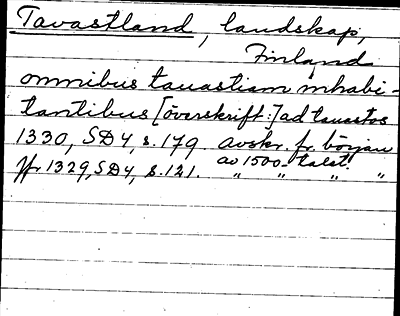 Tavastland, landskap,
Finland
omnibus tauastiam inhabi-
tantibus [överskrift:] ad tauastos
1330, SD4, s. 179. avskr. fr. början
av 1500-talet.
Jfr 1329, SD4, s. 121. " " " "